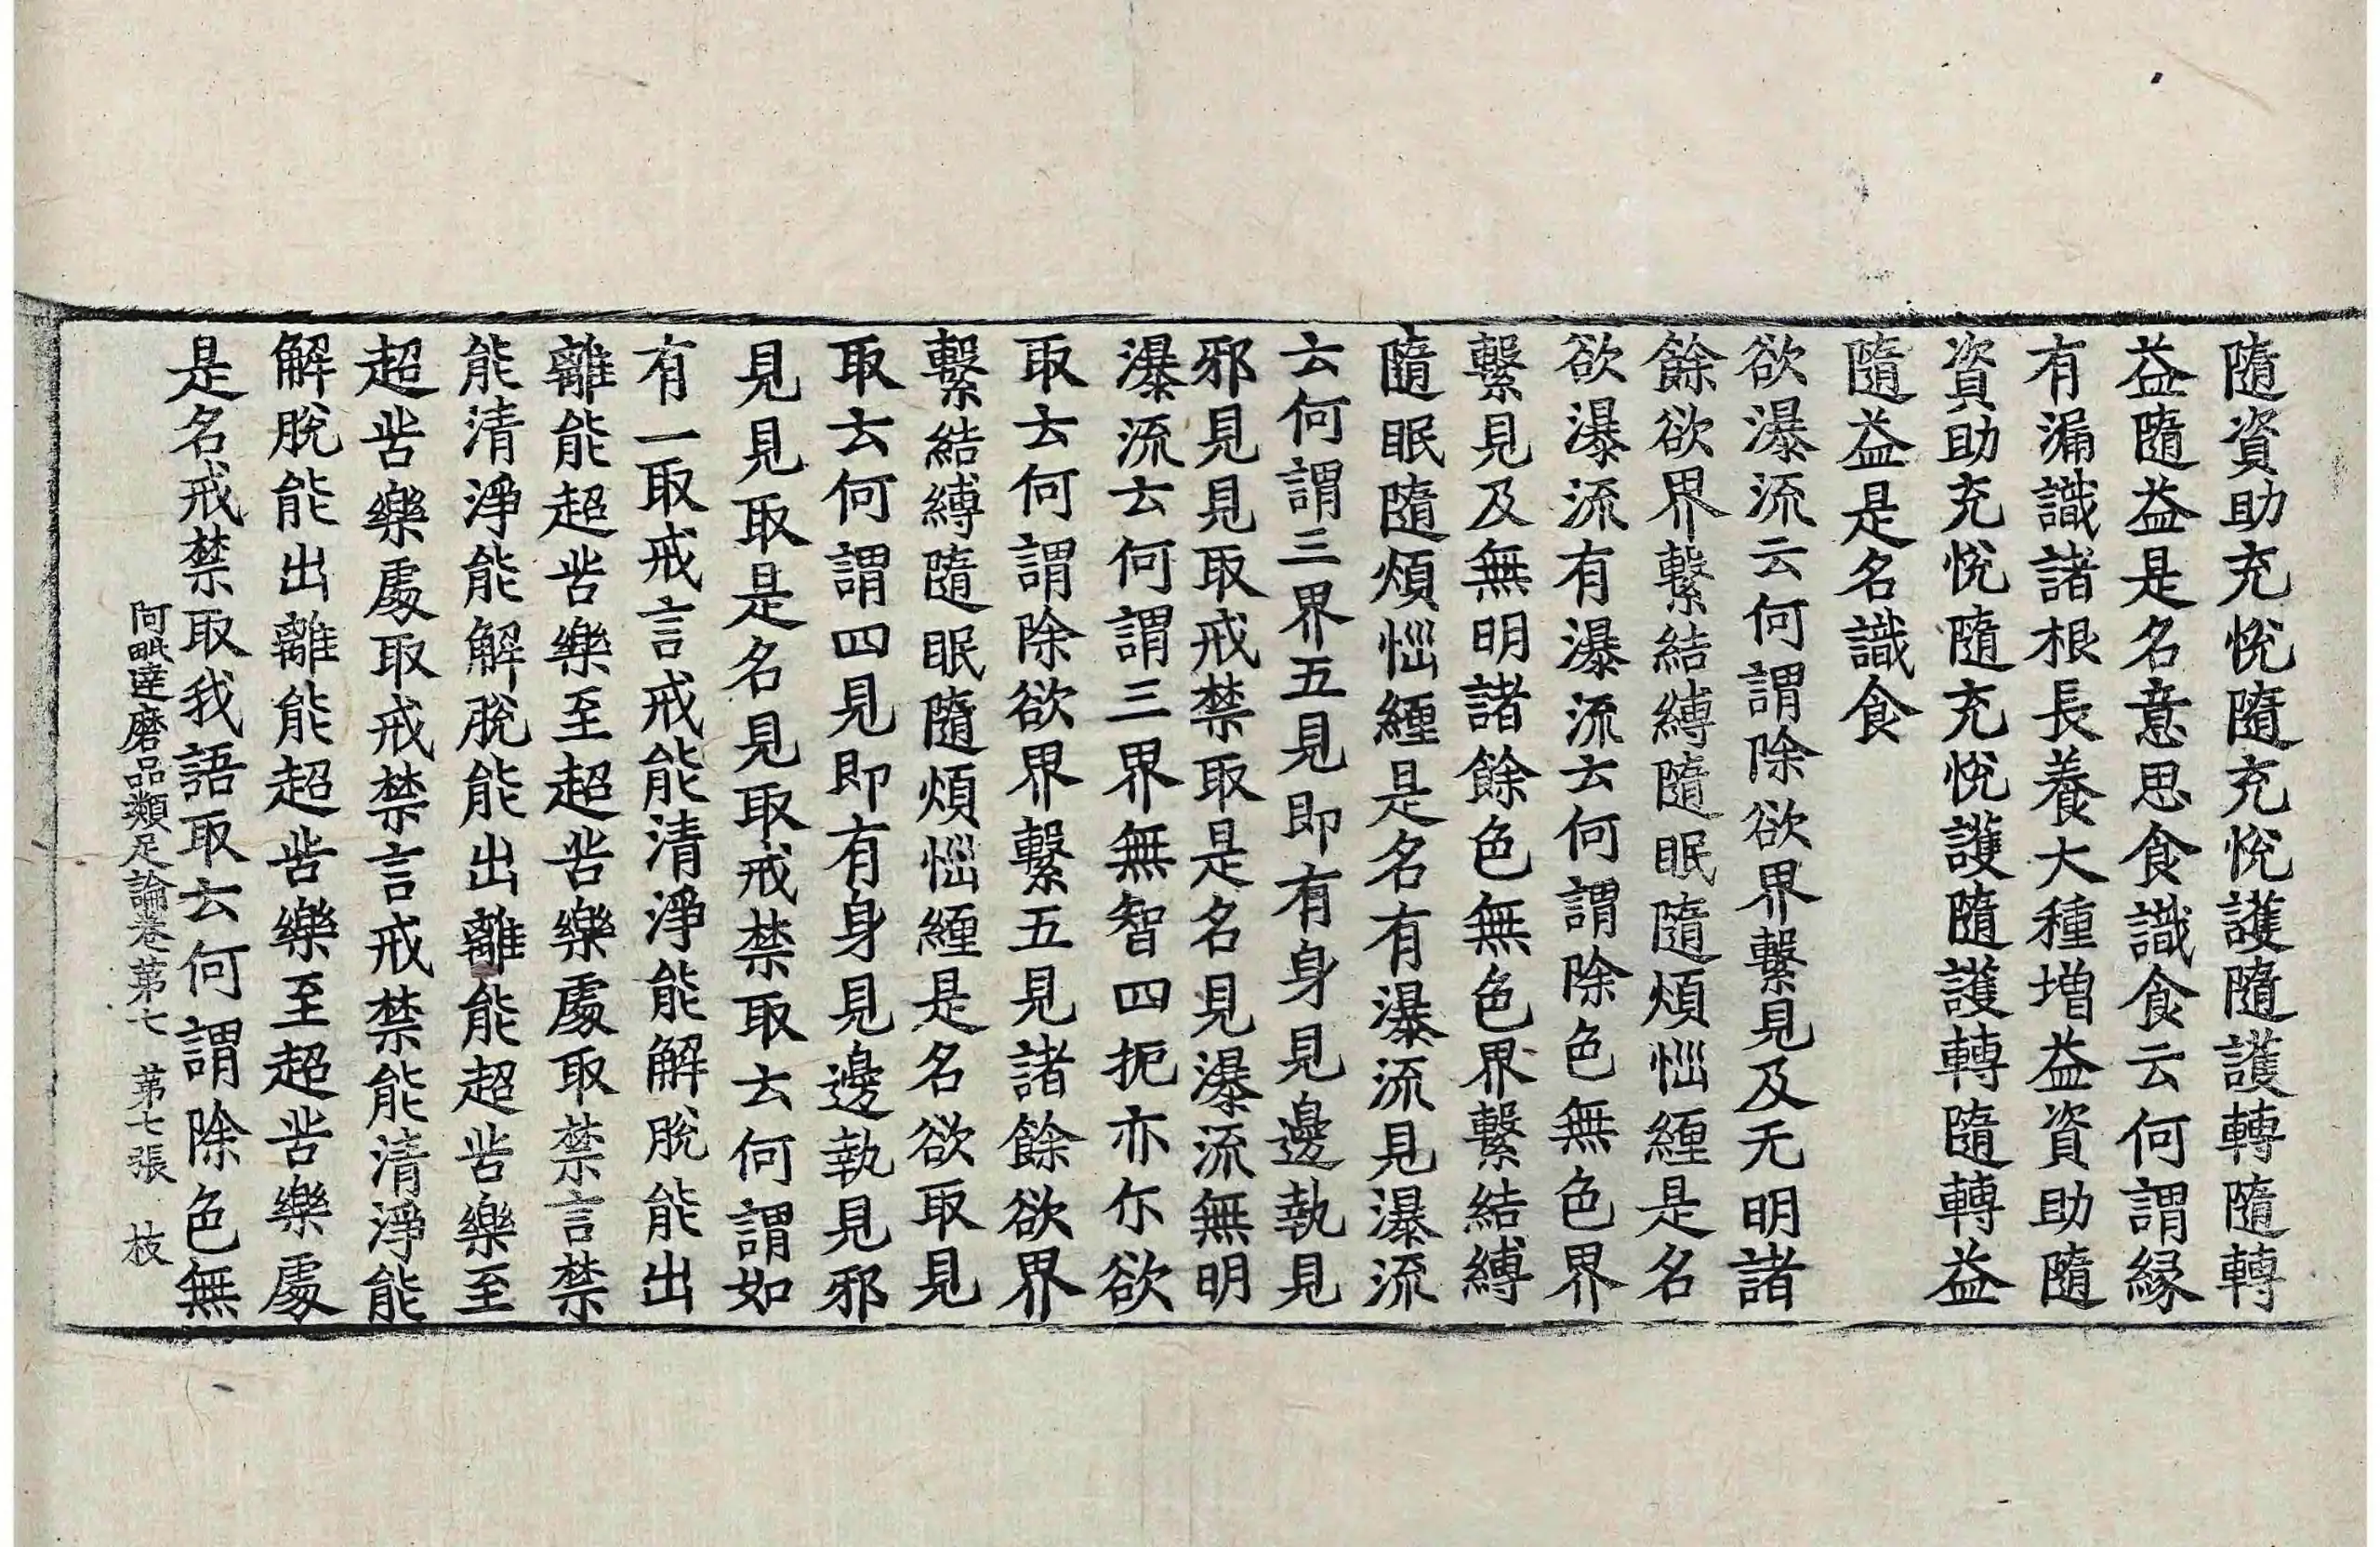 隨資助充悅隨充悅護隨護轉隨轉
益隨益是名意思食識食云何謂緣
有漏識諸根長養大種增益資助隨
資助充悅隨充悅護隨護轉隨轉益
隨益是名識食
欲瀑流云何謂除欲界繫見及无明諸
餘欲界繫結縛隨眠隨煩惱纏是名
欲瀑流有瀑流云何謂除色無色界
繫見及無明諸餘色無色界繫結縛
隨眠隨煩惱纏是名有瀑流見瀑流
云何謂三界五見即有身見邊執見
邪見見取戒禁取是名見瀑流無明
瀑流云何謂三界無智四扼亦尒欲
取云何謂除欲界繫五見諸餘欲界
繫結縛隨眠隨煩惱纏是名欲取見
取云何謂四見即有身見邊執見邪
見見取是名見取戒禁取云何謂如
有一取戒言戒能清淨能解脫能出
離能超苦樂至超苦樂處取禁言禁
能清淨能解脫能出離能超苦樂至
超苦樂處取戒禁言戒禁能清淨能
解脫能出離能超苦樂至超苦樂處
是名戒禁取我語取云何謂除色無
阿毗達磨品類足論卷第七 第七張 枝